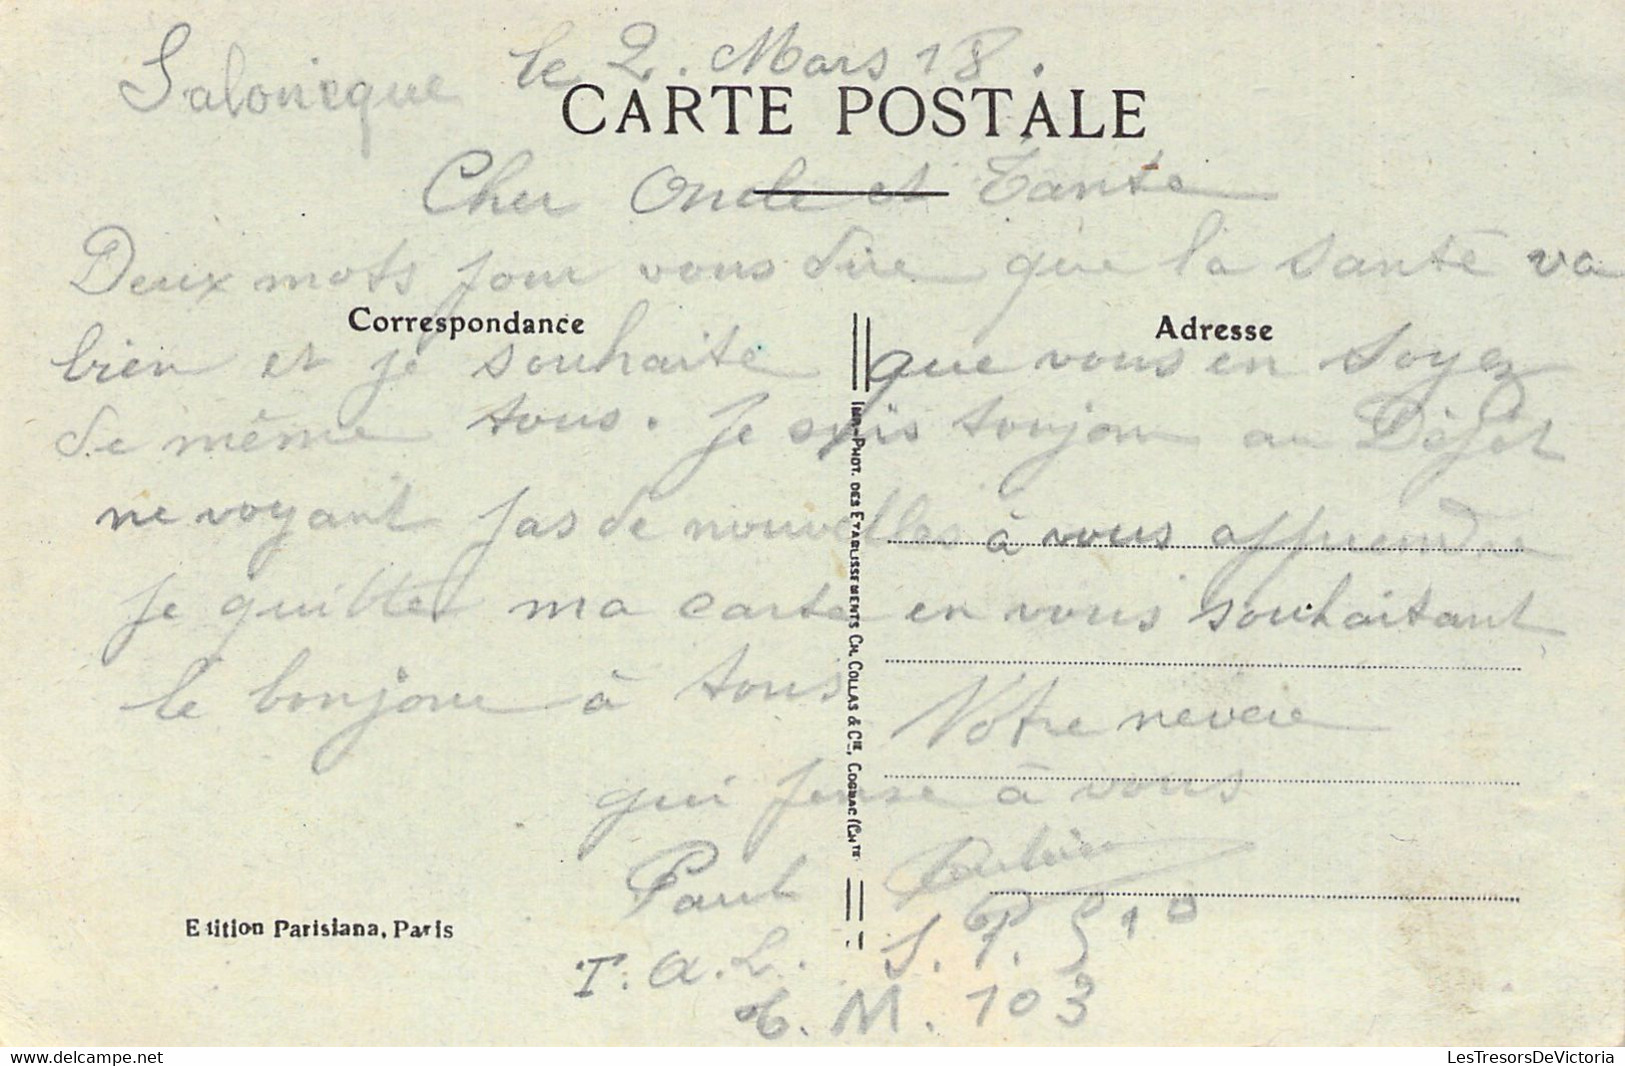 Salonicque le 2. Mars 18.
CARTE POSTALE
Cher Oncle et Tante
Deux mots pour vous dire que la santé va
Correspondance
Adresse
bien et je souhaite que vous en soyez
de même tous. Je suis toujour au Dépôt
ne voyant pas de nouvelles à vous apprendre
je quitte ma carte en vous souhaitant
le bonjour à tous
Votre neveu
qui pense à vous
Paul
Edition Parisiana, Paris
T. A. L. S. P. 510
C. M. 103
IMP-PHOT. DES ETABLISSEMENTS CH. COLLAS & CIE, COGNAC (CHTE)
LesTresorsDeVictoria
For sale on www.delcampe.net